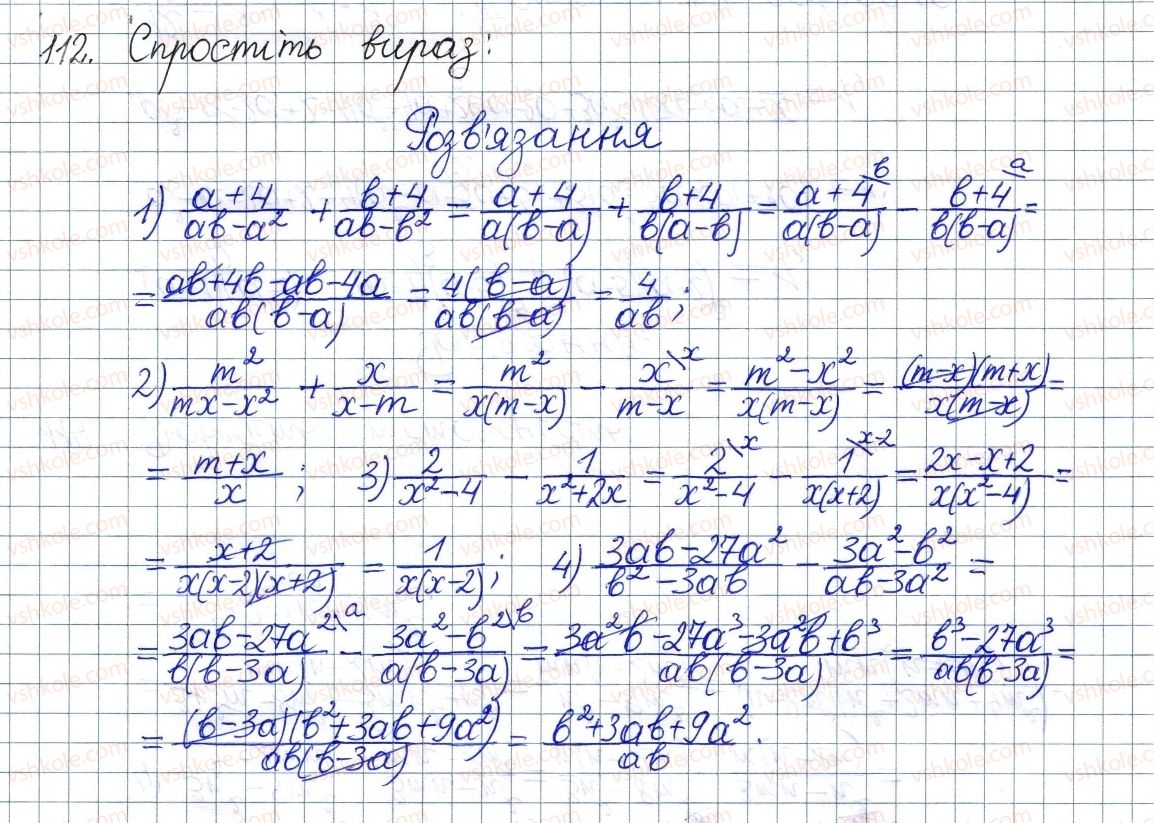 112. Спростіть вираз:
Розв'язання
1) \frac{a+4}{ab-a^2} + \frac{b+4}{ab-b^2} = \frac{a+4}{a(b-a)} + \frac{b+4}{b(a-b)} = \frac{a+4}{a(b-a)}^{\backslash b} - \frac{b+4}{b(b-a)}^{\backslash a} =
= \frac{ab+4b-ab-4a}{ab(b-a)} = \frac{4(b-a)}{ab(b-a)} = \frac{4}{ab};
2) \frac{m^2}{mx-x^2} + \frac{x}{x-m} = \frac{m^2}{x(m-x)} - \frac{x}{m-x}^{\backslash x} = \frac{m^2-x^2}{x(m-x)} = \frac{(m-x)(m+x)}{x(m-x)} =
= \frac{m+x}{x}; 3) \frac{2}{x^2-4} - \frac{1}{x^2+2x} = \frac{2}{x^2-4}^{\backslash x} - \frac{1}{x(x+2)}^{\backslash x-2} = \frac{2x-x+2}{x(x^2-4)} =
= \frac{x+2}{x(x-2)(x+2)} = \frac{1}{x(x-2)}; 4) \frac{3ab-27a^2}{b^2-3ab} - \frac{3a^2-b^2}{ab-3a^2} =
= \frac{3ab-27a^2}{b(b-3a)}^{\backslash a} - \frac{3a^2-b^2}{a(b-3a)}^{\backslash b} = \frac{3a^2b-27a^3-3a^2b+b^3}{ab(b-3a)} = \frac{b^3-27a^3}{ab(b-3a)} =
= \frac{(b-3a)(b^2+3ab+9a^2)}{ab(b-3a)} = \frac{b^2+3ab+9a^2}{ab}.
vshkole.com